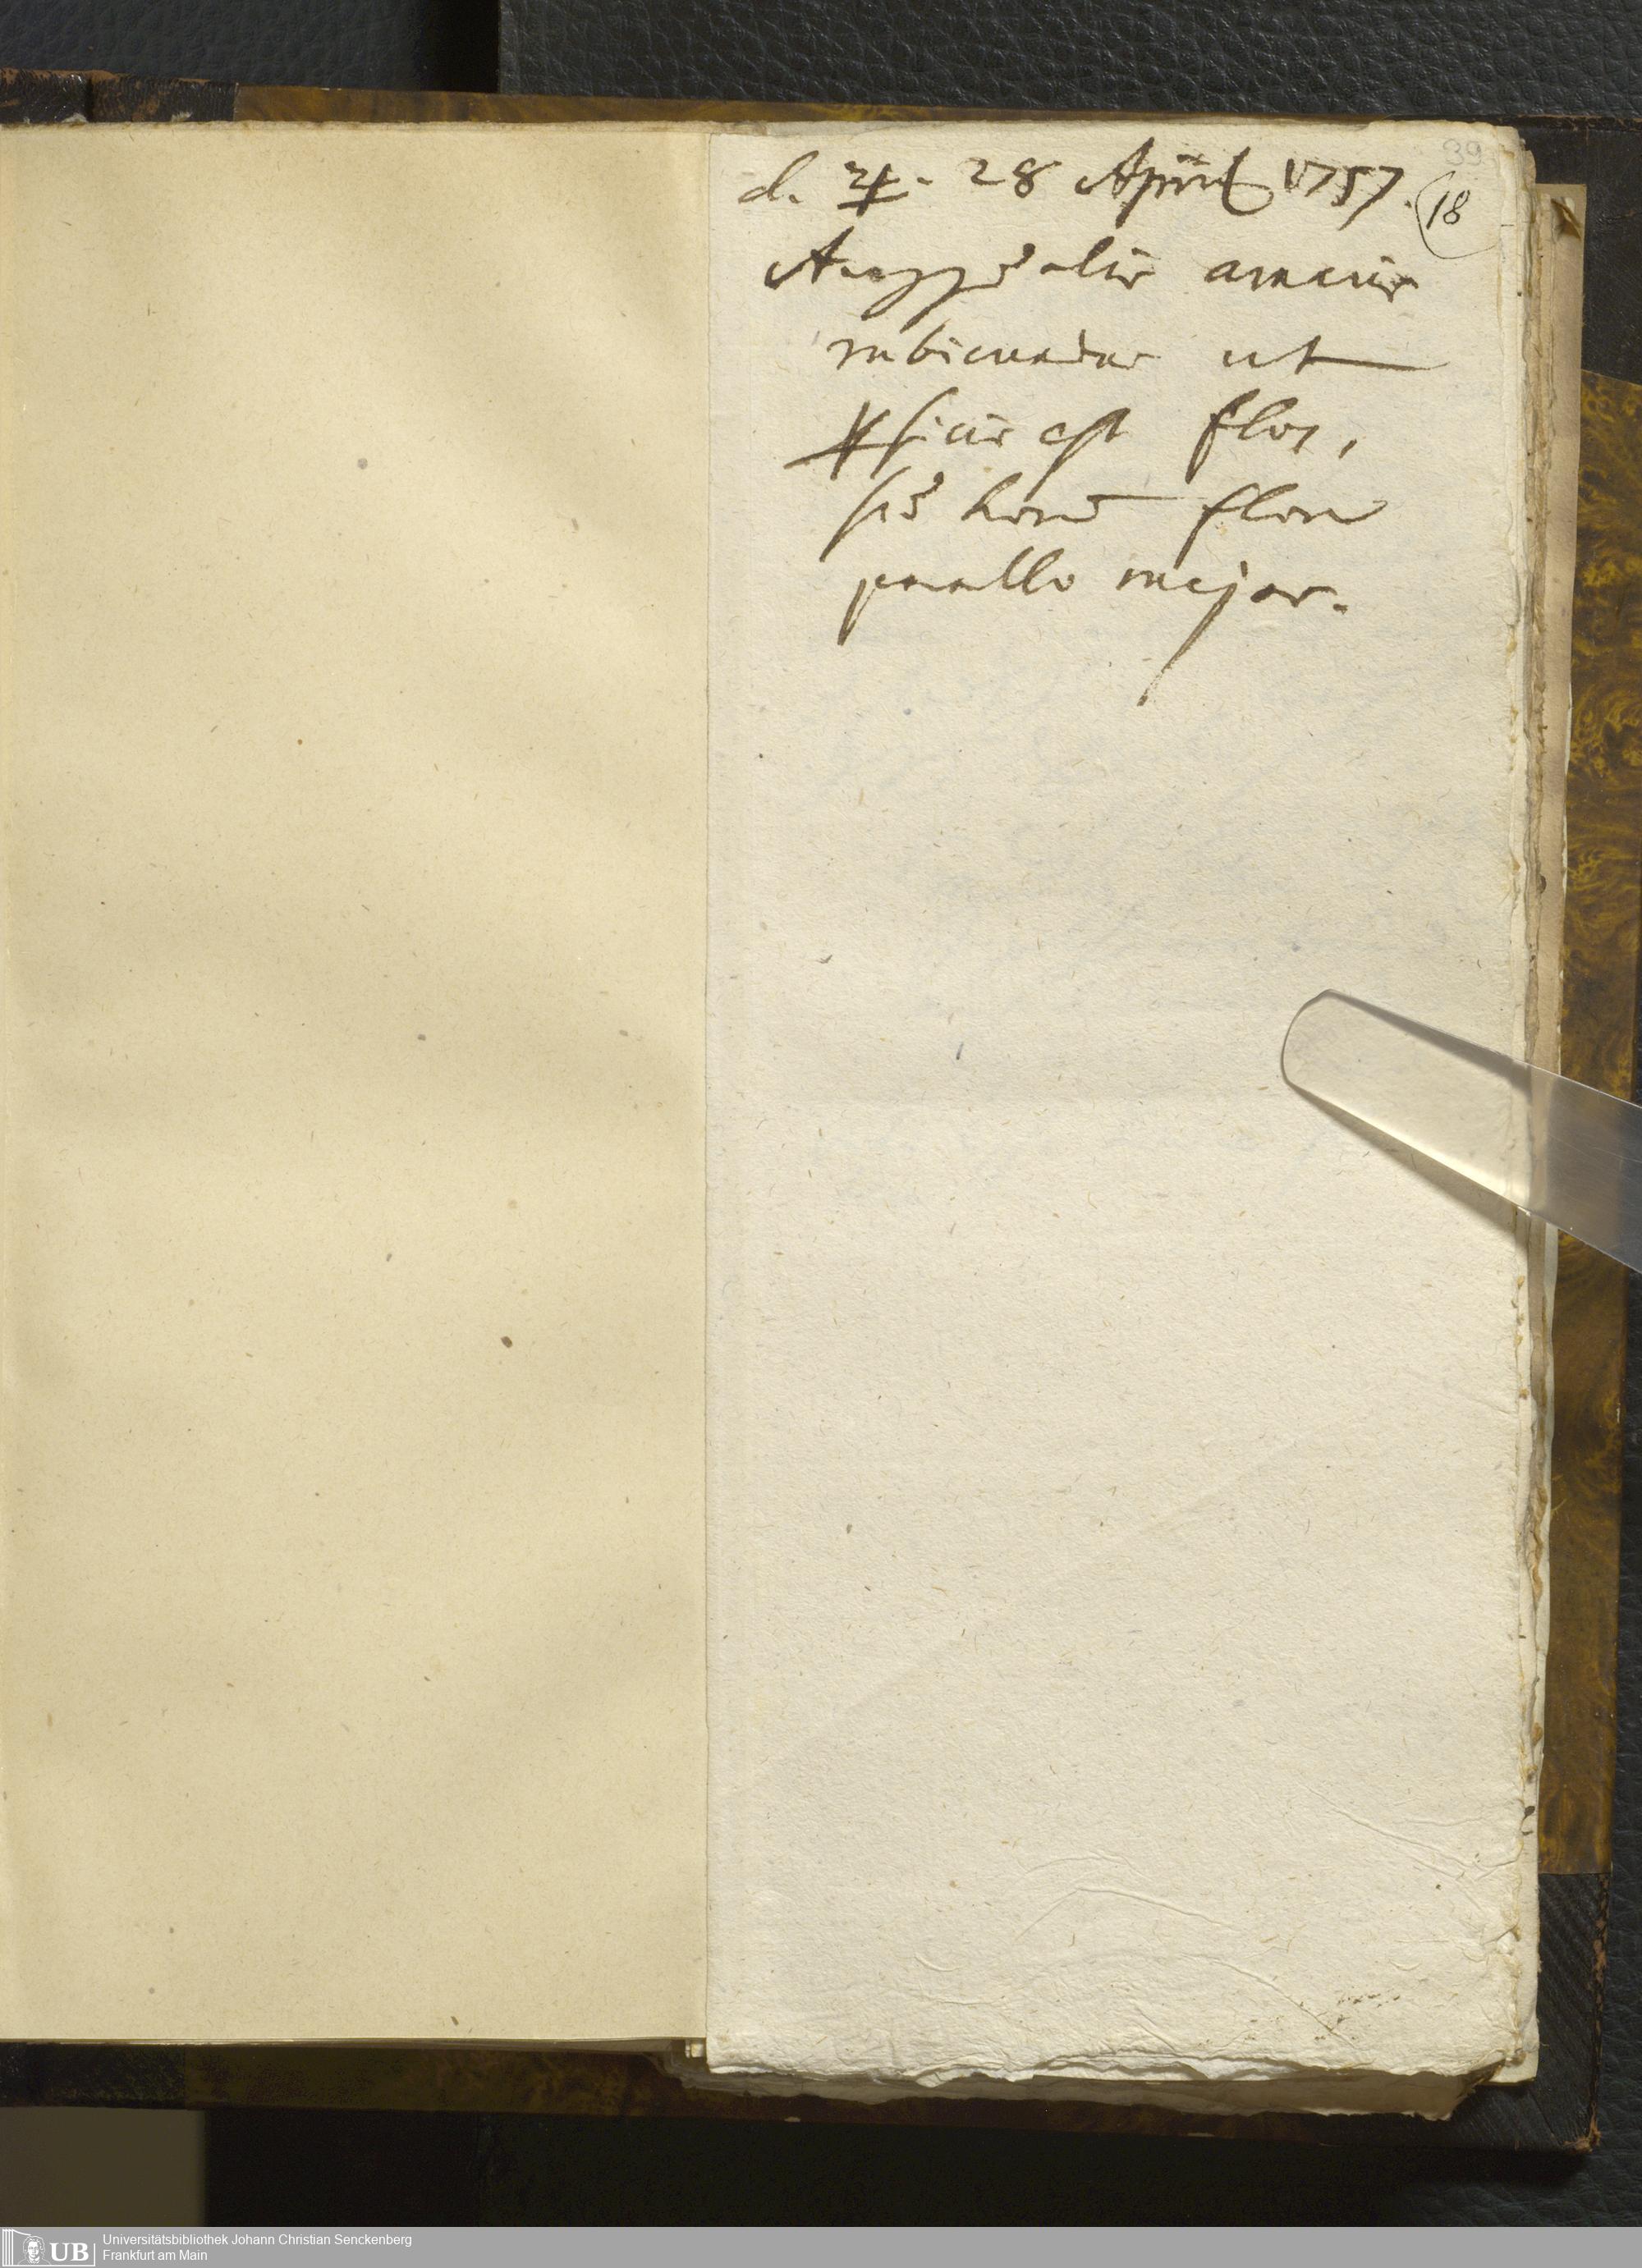 39
d. ♃. 28 April 1757. (18
Amygdalis amaris
rubicundus ut
psicis est flos,
sed horū flore
paullo major.
UB Universitätsbibliothek Johann Christian Senckenberg
Frankfurt am Main